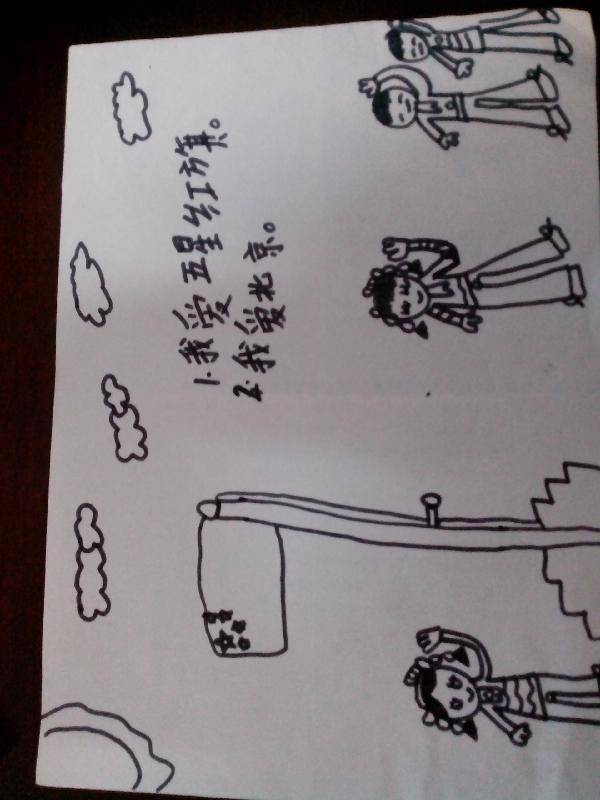 1.我爱五星红旗。
2.我爱北京。